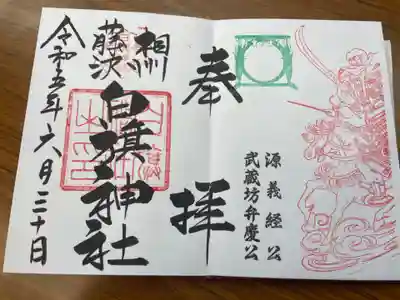 奉拝
源義経公
武蔵坊弁慶公
相州
藤沢
白旗神社
令和五年六月三十日